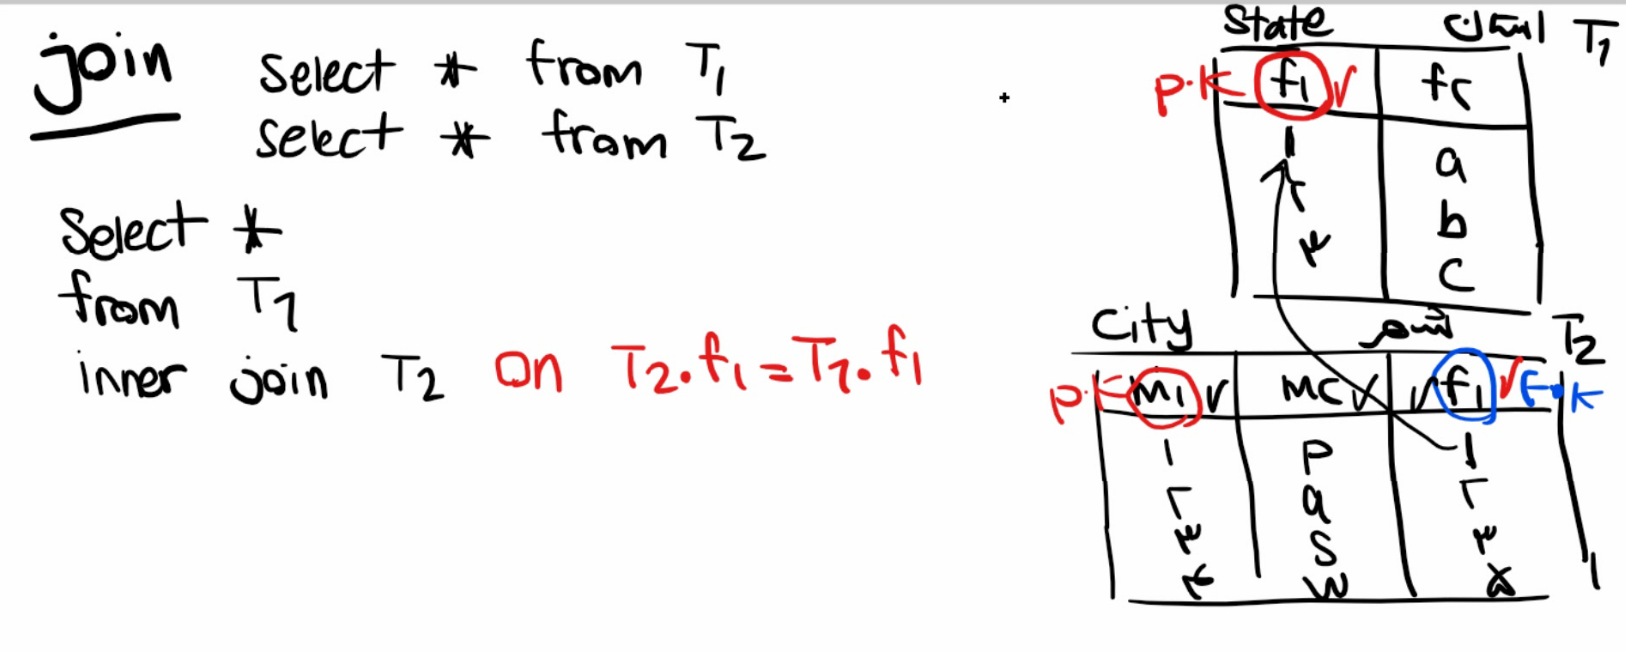 join
Select * from T1
Select * from T2
Select *
from T1
inner join T2 on T2.f1=T1.f1
State استان T1
P.K f1 f۲
۱ a
۲ b
۳ c
City شهر T2
P.K m1 m۲ f1 F.K
۱ p ۱
۲ q ۲
۳ s ۳
۴ w ۵